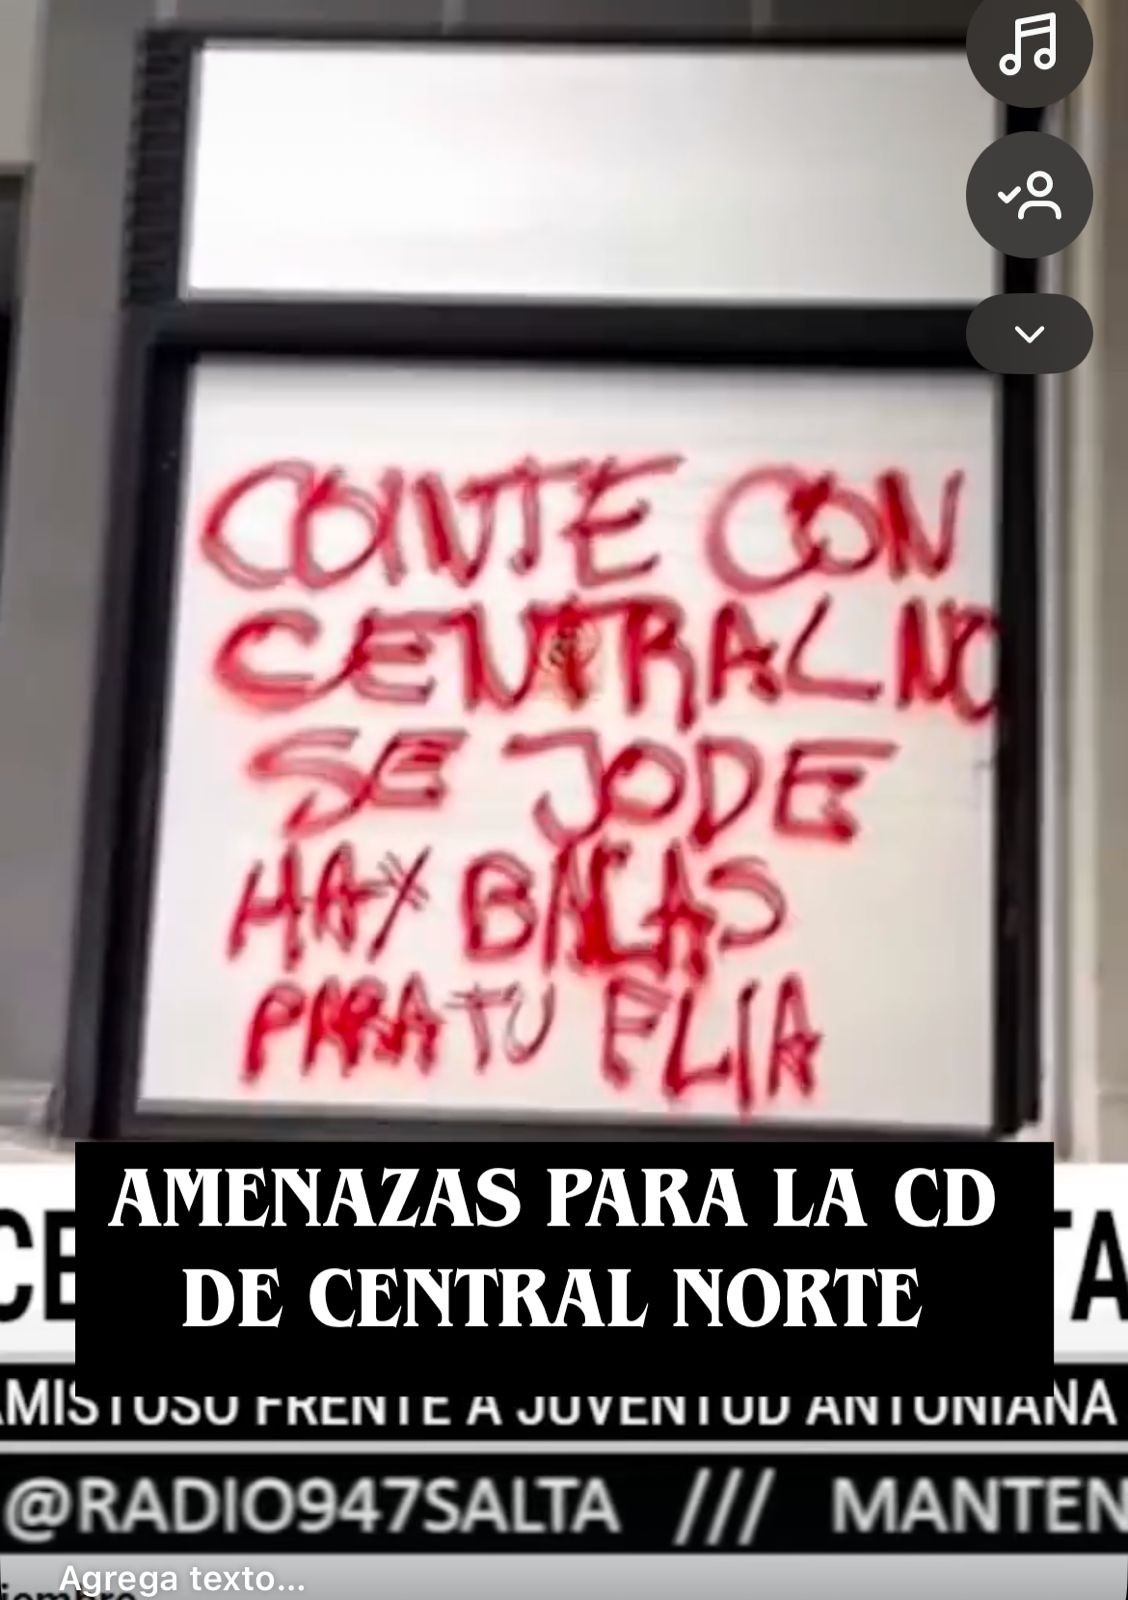 COINTE CON
CENTRAL NO
SE JODE
HAY BALAS
PARA TU FLIA
AMENAZAS PARA LA CD
DE CENTRAL NORTE
CE
TA
AMISTOSO FRENTE A JUVENTUD ANTONIANA
@RADIO947SALTA /// MANTEN
Agrega texto...
iembre